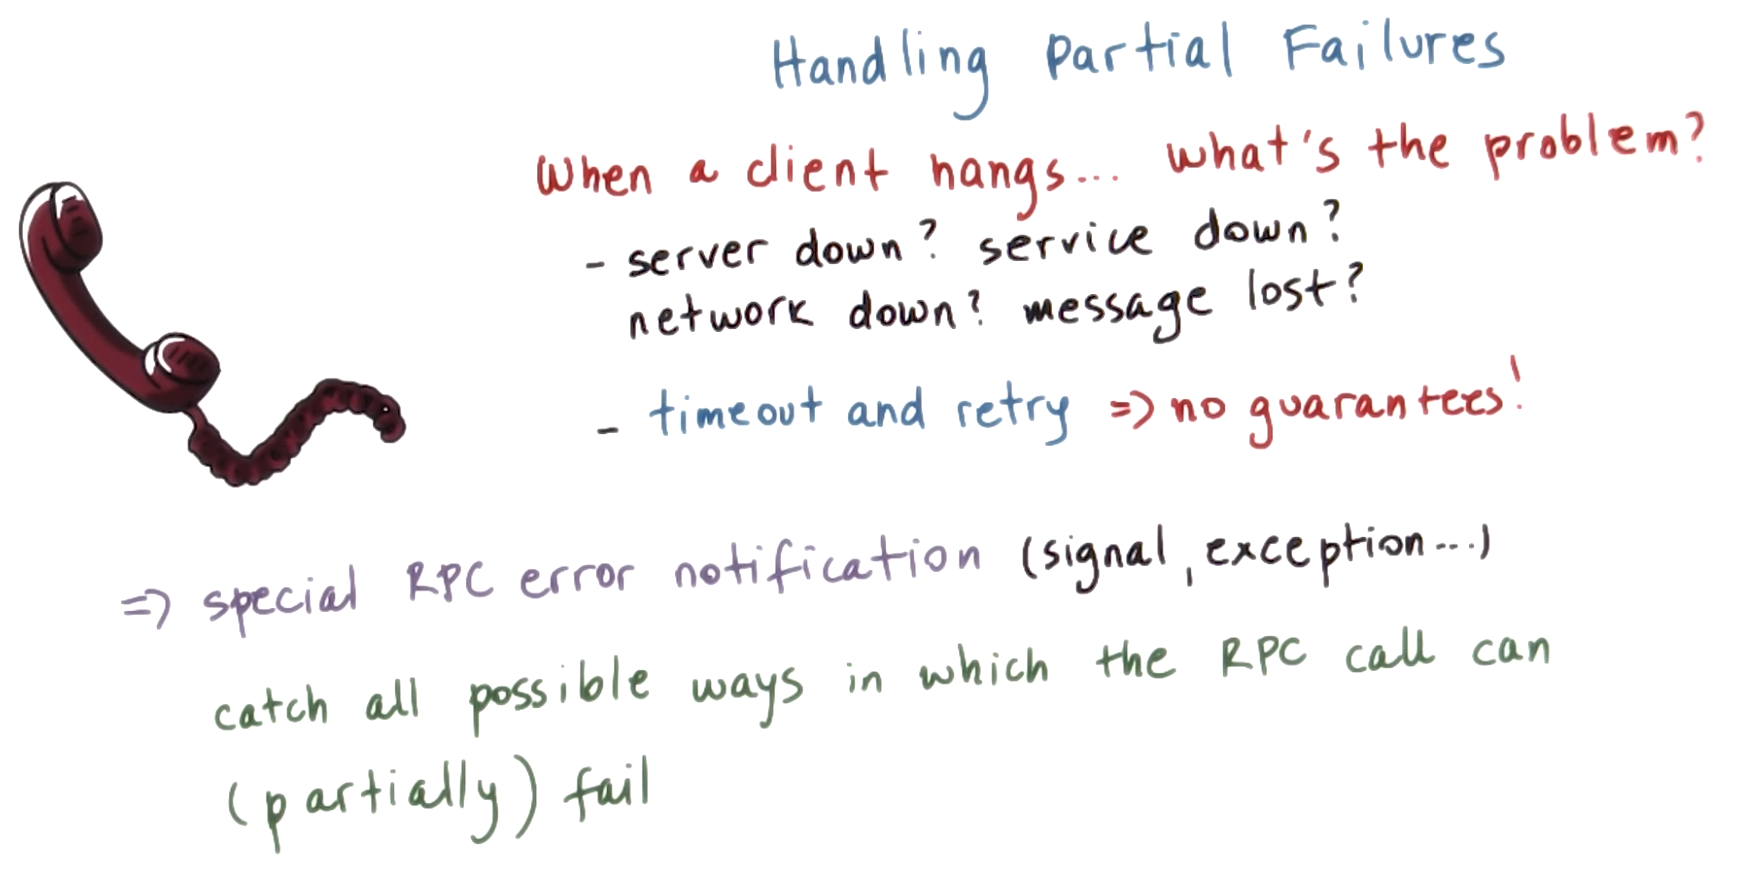 Handling Partial Failures
When a client hangs... what's the problem?
- server down? service down?
network down? message lost?
- timeout and retry => no guarantees!
=> special RPC error notification (signal, exception...)
catch all possible ways in which the RPC call can
(partially) fail